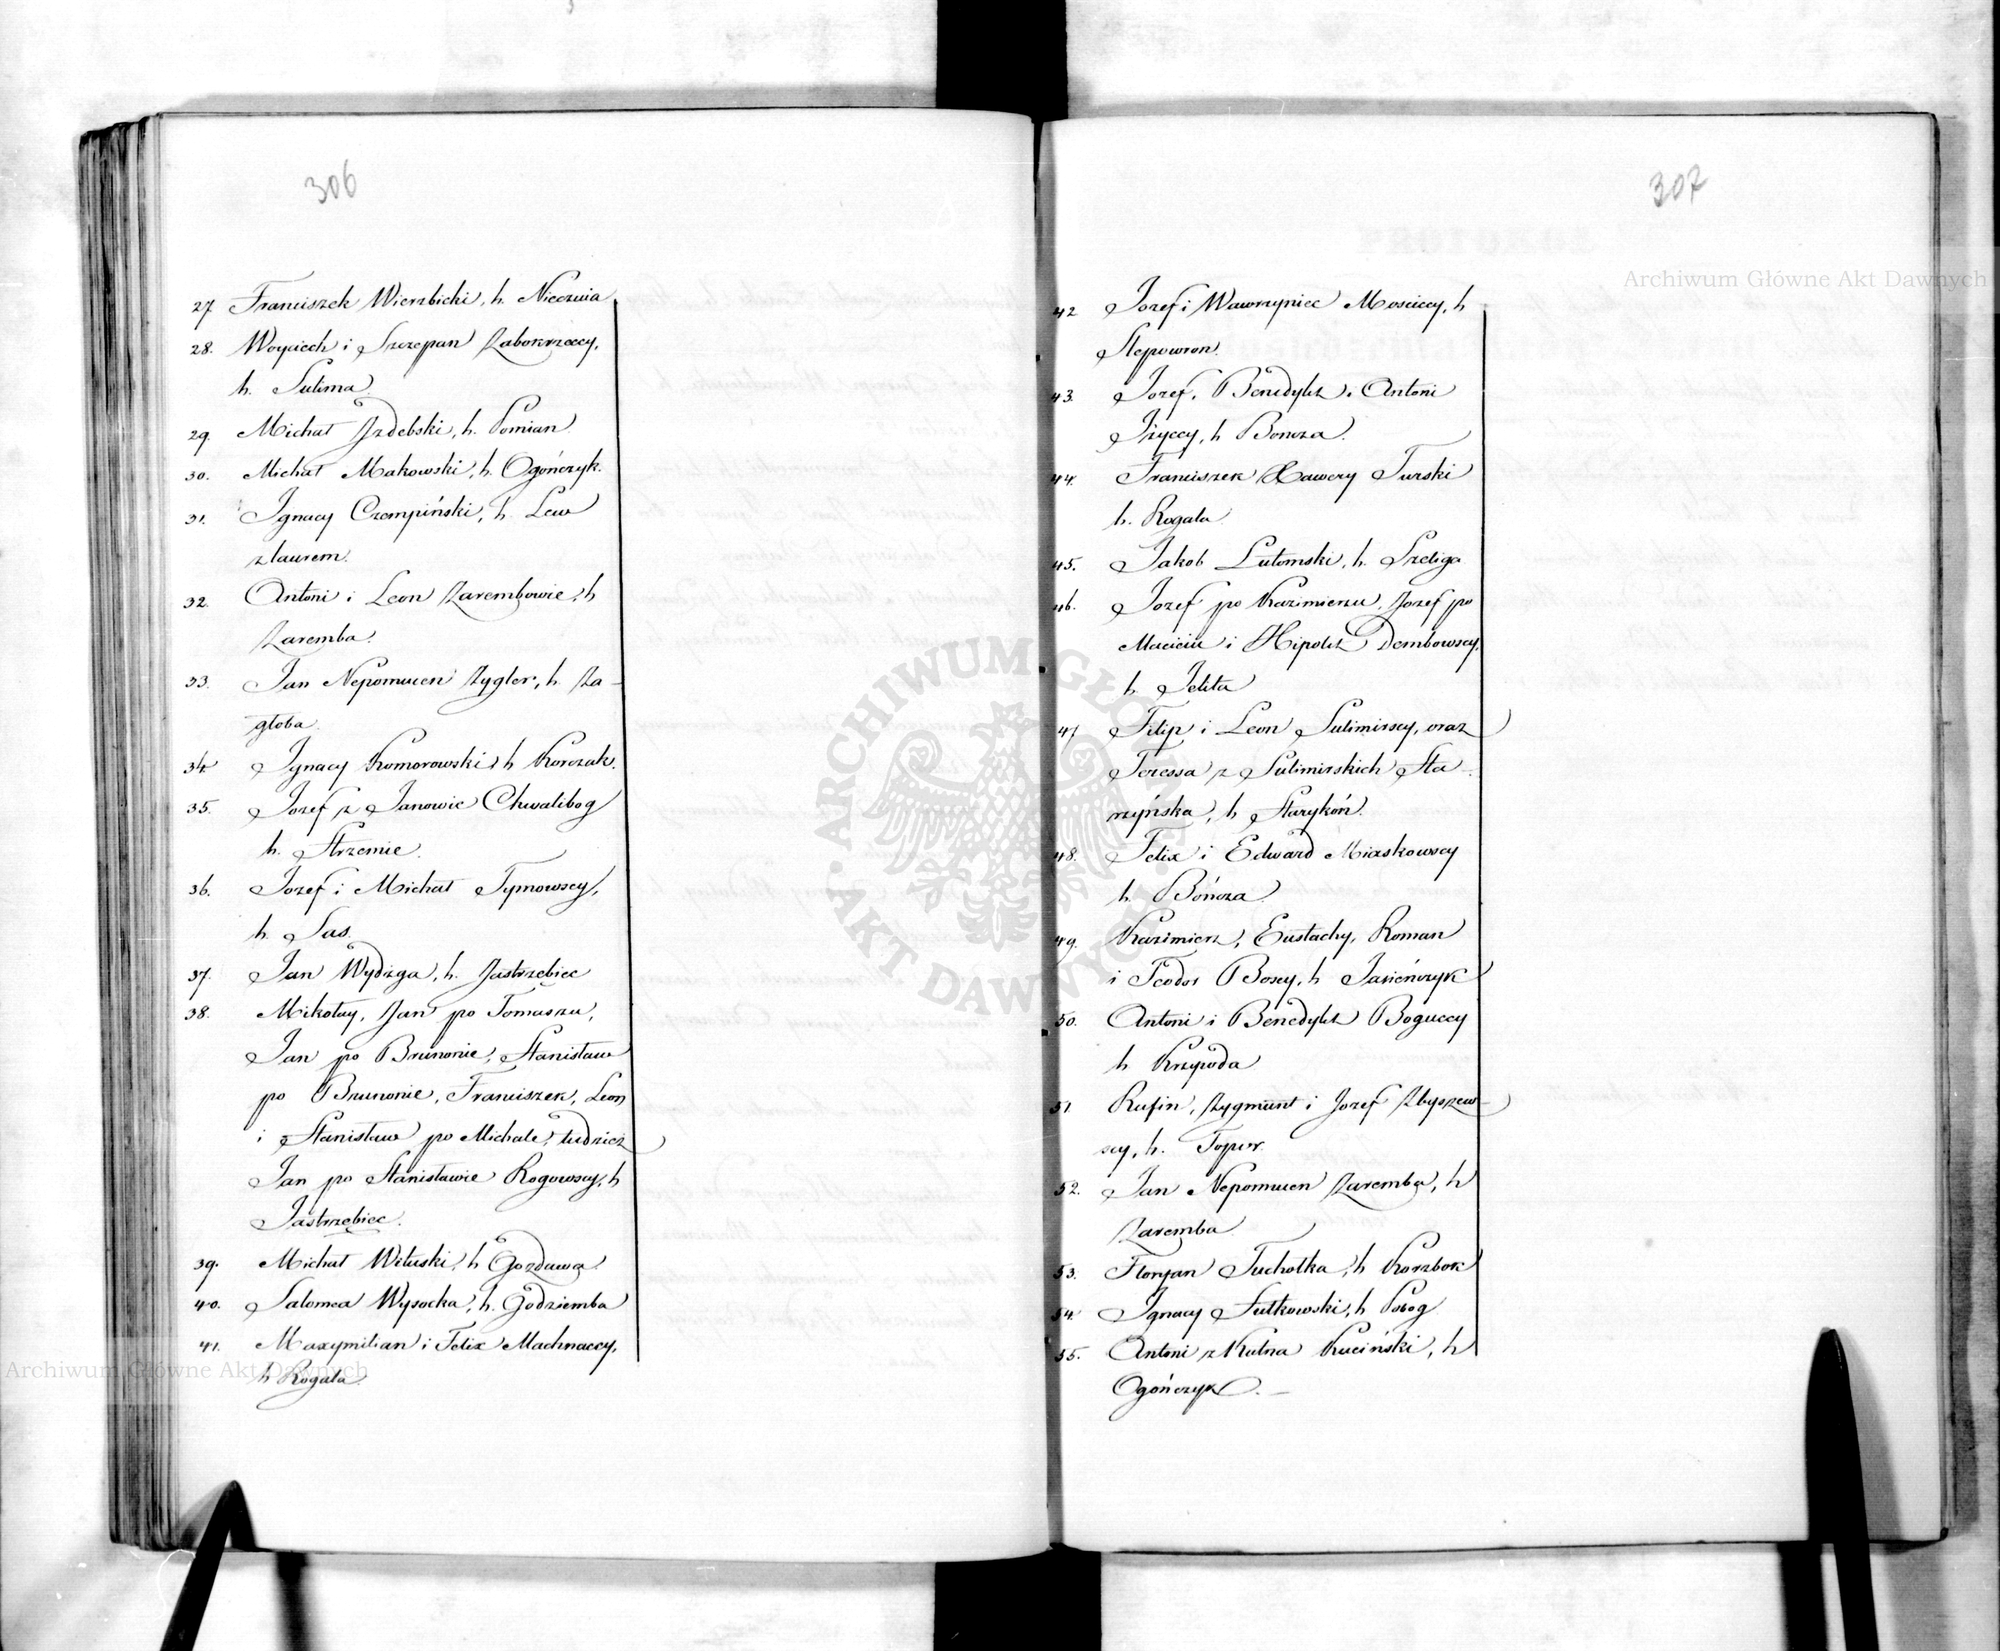 306
27 Franciszek Wierzbicki, h. Nieczuia
28. Woyciech i Szczepan Zaborzeccy,
h. Sulima
29. Michał Izdebski, h. Pomian
30. Michał Makowski, h. Ogończyk.
31. Ignacy Czempiński, h. Lew
z laurem.
32. Antoni i Leon Zarembowie, h
Zaremba.
33. Jan Nepomucen Zygler, h. Za-
głoba.
34 Ignacy Komorowski, h Korczak.
35. Jozef z Janowic Chwalibog
h. Strzemie.
36. Jozef i Michał Tymowscy,
h. Sas.
37. Jan Wydżga, h. Jastrzębiec
38. Mikołay, Jan po Tomaszu,
Jan po Brunonie, Stanisław
po Brunonie, Franciszek, Leon
i Stanisław po Michale, tudzież
Jan po Stanisławie Rogowscy, h
Jastrzębiec.
39. Michał Wituski, h Gozdawa
40. Salomea Wysocka, h. Godziemba
41. Maxymilian i Felix Machnaccy,
h Rogala.
307
42 Jozef i Wawrzyniec Mosciccy, h
Slepowron.
43. Jozef, Benedykt i Antoni
Iżyccy, h Boncza.
44. Franciszek Xawery Turski
h. Rogala
45. Jakob Lutomski, h. Szeliga
46. Jozef po Kazimierzu, Jozef po
Macieiu i Hipolit Dembowscy,
h. Jelita
47 Filip i Leon Sulimirscy, oraz
Teressa z Sulimirskich Sta-
rzyńska, h Starykoń.
48. Felix i Edward Miaskowscy
h. Bończa
49. Kazimierz, Eustachy, Roman
i Teodor Boscy, h Jasieńczyk
50. Antoni i Benedykt Boguccy
h Krzywda
51 Rufin, Zygmunt i Jozef Zbyszew-
scy, h. Topor.
52. Jan Nepomucen Zaremba, h
Zaremba
53. Floryan Tuchołka, h Korzbok
54. Ignacy Sutkowski, h Pobog
55. Antoni z Kutna Kuciński, h
Ogończyk. —
Archiwum Główne Akt Dawnych
Archiwum Główne Akt Dawnych
ARCHIWUM GŁÓWNE AKT DAWNYCH